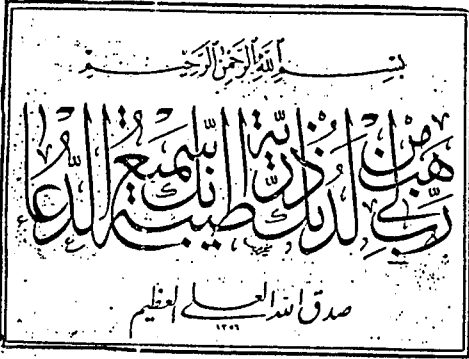 بسم الله الرحمن الرحيم
رب هب لي من لدنك ذرية طيبة إنك سميع الدعاء
صدق الله العلي العظيم
١٣٥٦